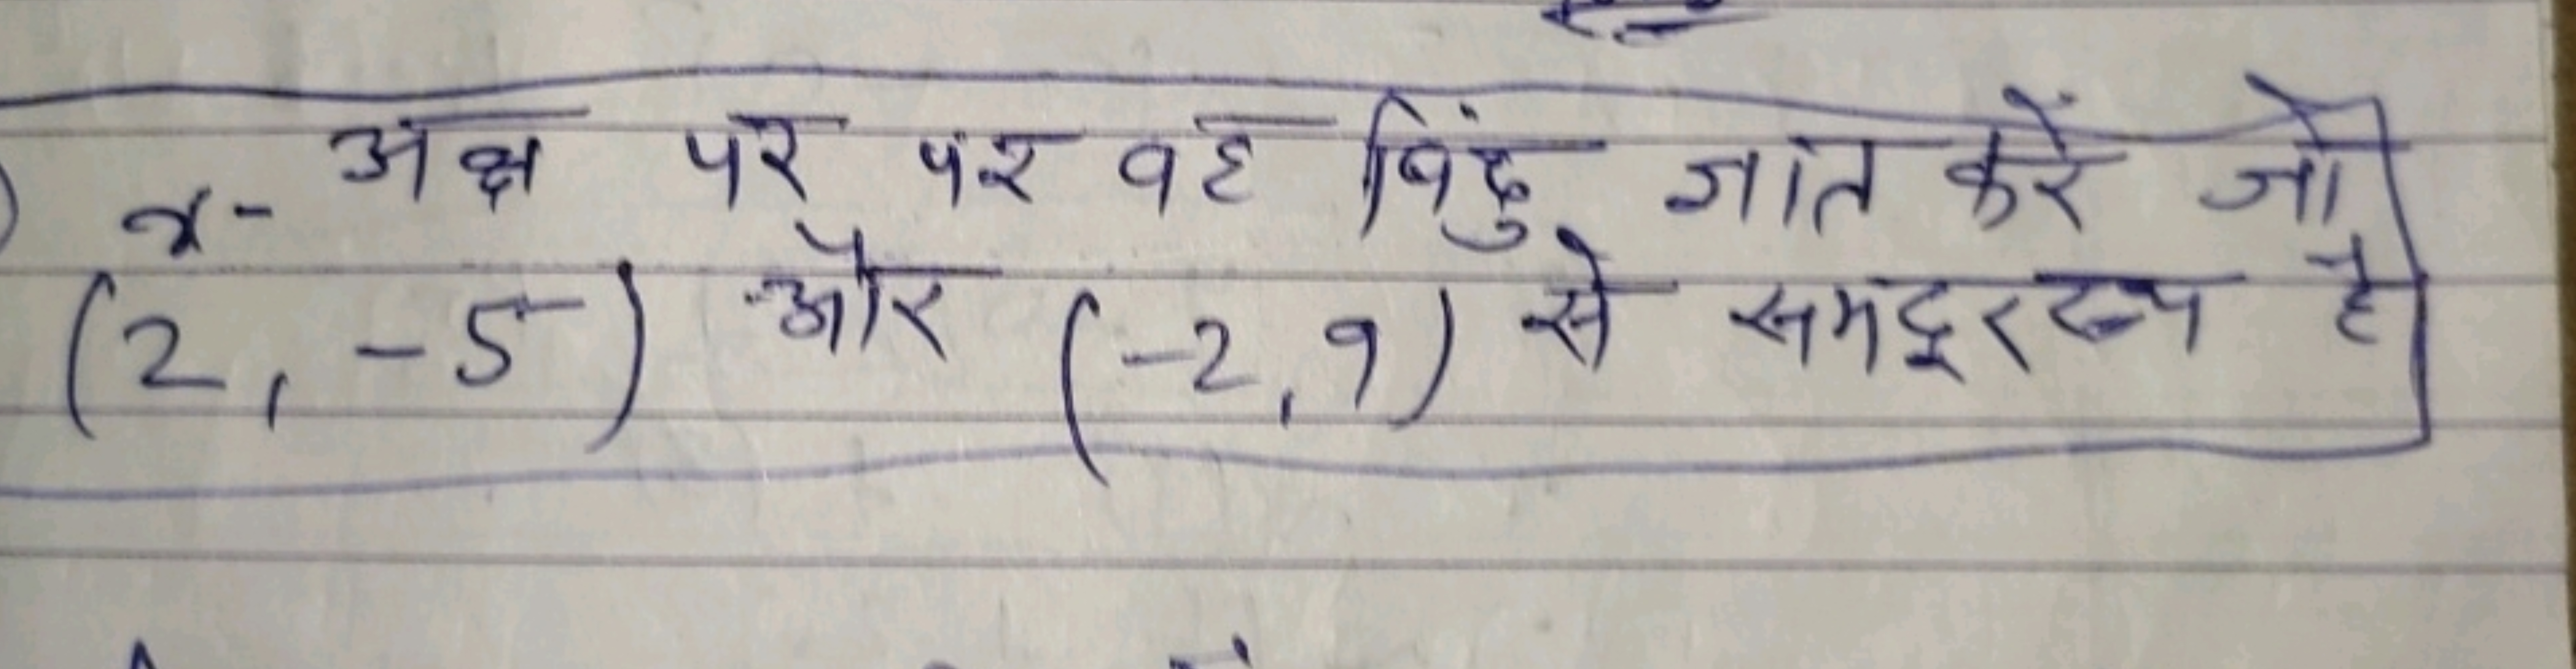 x- अक्ष पर पर वह बिंदु ज्ञात करें जो
(2, -5) और (-2, 9) से समदूरस्थ है